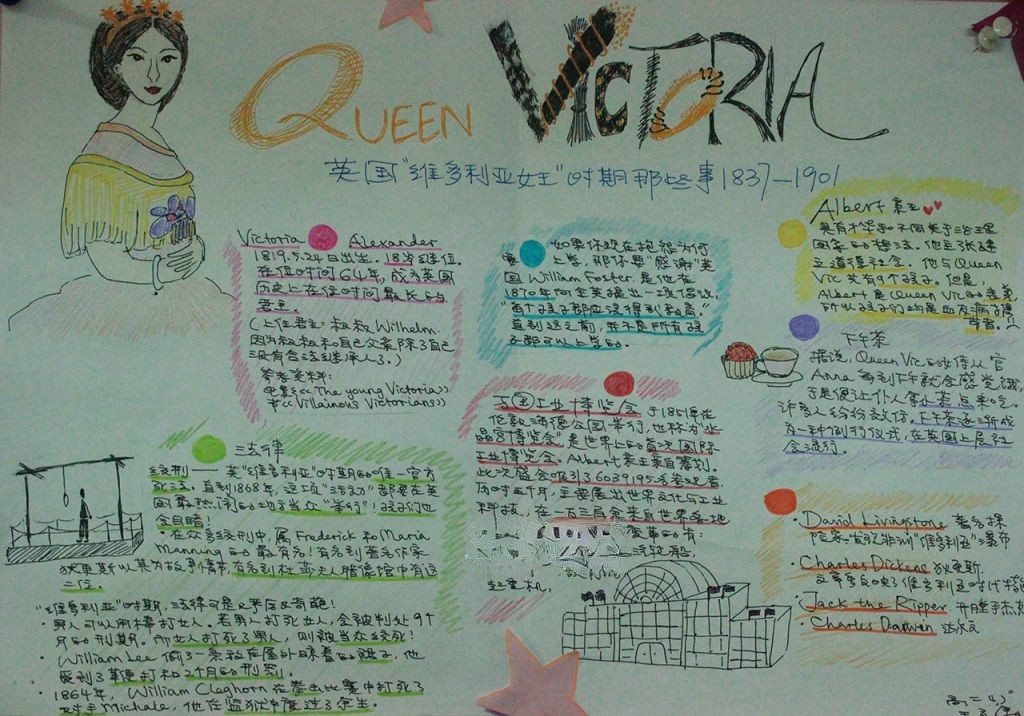 QUEEN VICTORIA
英国“维多利亚女王”时期那些事1837—1901
Victoria Alexander
1819.5.24日出生.18岁继位.
在位时间64年,成为英国
历史上在位时间最长的
君主.
(上任君主:叔叔Wilhelm.
因为叔叔和自己父亲除了自己
没有合法继承人了.)
参考资料:
电影《The young Victoria》
书《Villainous Victorians》
如果你现在抱怨为何
要上学,那你要“感谢”英
国William Foster,是他在
1870年向全英提出一项倡议,
“每个孩子都应该得到教育.”
直到这之前,并不是所有孩
子都可以上学的.
Albert 亲王
具有才华和不同关于治理
国家的想法.他主张建
立道德社会.他与Queen
Vic共有9个孩子.但是,
Albert是Queen Vic的表亲,
所以孩子们均是血友病携
带者.
下午茶
据说,Queen Vic的女侍从官
Anna每到下午就会感觉饿,
于是便让仆人拿小茶点来吃.
许多人纷纷效仿.下午茶逐渐成
为一种例行仪式,在英国上层社
会流行.
万国工业博览会 于1851年在
伦敦海德公园举行,也称为“水
晶宫博览会”是世界上的首次国际
工业博览会.Albert亲王亲自筹划.
此次盛会吸引了6039195名参观者.
历时五个月,主要展出世界文化与工业
科技,在一万三千余来自世界各地
起重机,
法律
绞刑——英“维多利亚”时期的唯一官方
死法.直到1868年,这项“活动”都要在英
国最热闹的地方当众“举行”!孩子们也
会目睹!
·在众多绞刑中,属Frederick和Maria
Manning的最有名!有名到著名作家
狄更斯以其为故事情节,有名到杜莎夫人腊像馆中有这
二位.
“维多利亚”时期,法律可是又严厉又奇葩!
·男人可以用棒打女人.若男人打死女人,会被判处9个
月的刑期.而女人打死了男人,则被当众绞死!
·William Lee偷了一条放在屋外晾着的裤子,他
受到了鞭打和2个月的刑罚.
·1864年,William Cleghorn在拳击比赛中打死了
对手Michale,他在监狱中度过了余生.
·David Livingstone 著名探
险家.发现非洲“维多利亚”瀑布
·Charles Dickens 狄更斯.
文章多反映了维多利亚时代
·Jack the Ripper 开膛手杰
·Charles Darwin 达尔文
高二